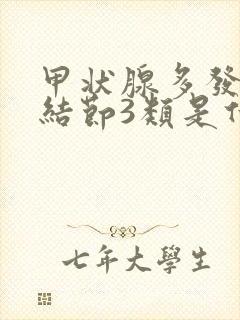 甲状腺多發
結節3類是什
七年大學生